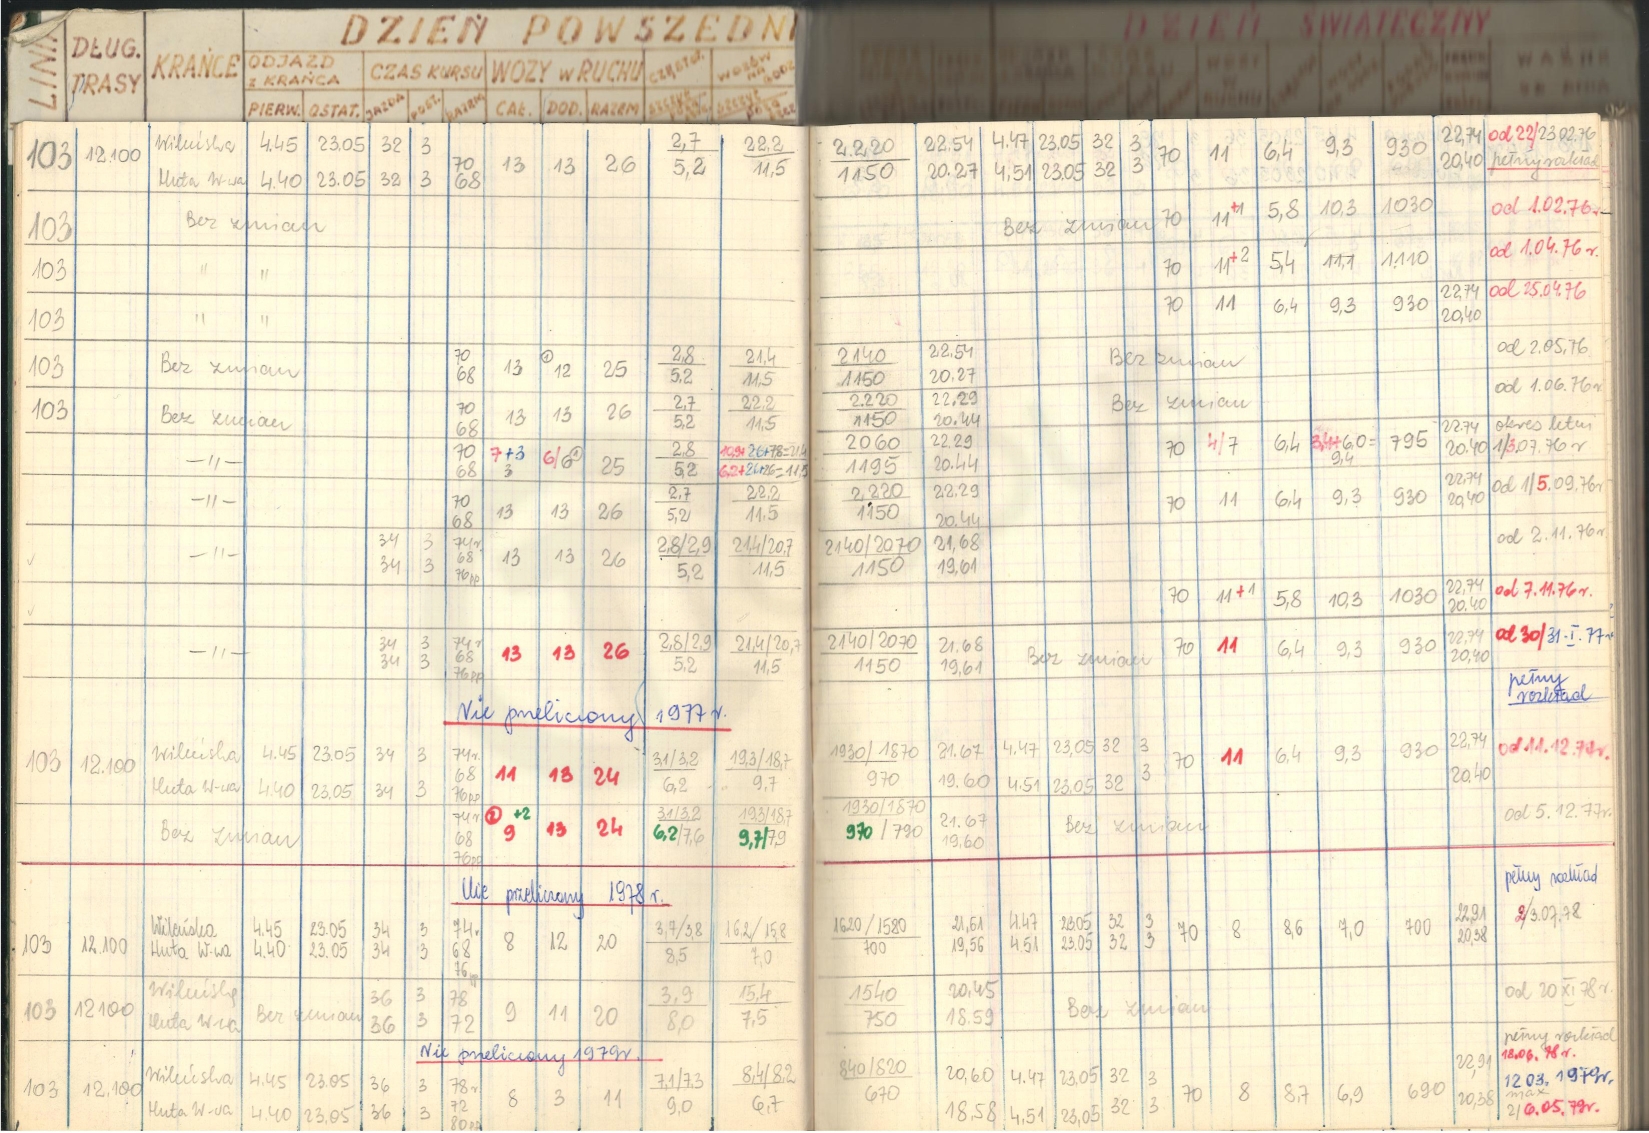 DZIEŃ POWSZEDNI
DZIEŃ ŚWIĄTECZNY
LINIA DŁUG. TRASY KRAŃCE ODJAZD Z KRAŃCA CZAS KURSU WOZY w RUCHU
PIERW. OSTAT. JAZDA POST. RAZEM CAŁ. DOD. RAZEM
103 12.100 Wileńska 4.45 23.05 32 3 70 13 13 26 2,7 22.2 2.2.20 22.54 4.47 23.05 32 3 70 11 6,4 9,3 930 22,74 od 22/23.02.76
Huta W-wa 4.40 23.05 32 3 68 5,2 11,5 1150 20.27 4,51 23.05 32 3 20,40 pełny rozkład
103 Bez zmian Bez zmian 70 11+1 5,8 10,3 1030 od 1.02.76r.
103 " " 70 11+2 5,4 11,1 1.110 od 1.04.76r.
103 " " 70 11 6,4 9,3 930 22,74 od 25.04.76
20,40
103 Bez zmian 70 13 12 25 2,8 21,4 2140 22.54 Bez zmian od 2.05.76
68 5,2 11,5 1150 20.27
103 Bez zmian 70 13 13 26 2,7 22.2 2.220 22.29 Bez zmian od 1.06.76r
68 5,2 11,5 1150 20.44
—"— 70 7+3 6/6 25 2,8 10,9+2,6+7,8=21,4 2060 22.29 70 4/7 6,4 3,4+6,0= 795 22.74 okres letni
68 3 5,2 6,2+2,6+2,6=11,5 1195 20.44 9,4 20.40 1/3.07.76r
—"— 70 13 13 26 2,7 22.2 2.220 22.29 70 11 6,4 9,3 930 22,74 od 1/5.09.76r
68 5,2 11.5 1150 20.44 20,40
—"— 34 3 74r. 13 13 26 2,8/2,9 21,4/20,7 2140/2070 21,68 od 2.11.76r
34 3 68 5,2 11,5 1150 19,61
76pp
70 11+1 5,8 10,3 1030 22,74 od 7.11.76r.
20.40
—"— 34 3 74r 13 13 26 2,8/2,9 21,4/20,7 2140/2070 21.68 Bez zmian 70 11 6,4 9,3 930 22,74 od 30/31-I.77r
34 3 68 5,2 11,5 1150 19,61 20,40
76pp
pełny rozkład
Nie przeliczony 1977r.
103 12.100 Wileńska 4.45 23.05 34 3 74r. 11 13 24 3,1/3,2 19,3/18,7 1930/1870 21.67 4.47 23,05 32 3 70 11 6,4 9,3 930 22,74
Huta W-wa 4.40 23.05 34 3 68 6,2 9,7 970 19.60 4.51 23.05 32 3 20,40
76pp
Bez zmian 74r +2 9 13 24 3,1/3,2 19,3/18,7 1930/1870 21.67 Bez zmian od 5.12.77r.
68 6,2/7,6 9,7/7,9 970/790 19.60
76pp
Nie przeliczony 1978r. pełny rozkład
103 12.100 Wileńska 4.45 23.05 34 3 74r 8 12 20 3,7/3,8 16,2/15,8 1620/1580 21,61 4.47 23.05 32 3 70 8 8,6 7,0 700 22,91 2/3.07.78
Huta W-wa 4.40 23.05 34 3 68 8,5 7,0 700 19,56 4.51 23.05 32 3 20,38
103 12.100 Wileńska Bez zmian 36 3 78 9 11 20 3,9 15,4 1540 20,45 Bez zmian od 20 XI 78r.
Huta W-wa 36 3 72 8,0 7,5 750 18.59
Nie przeliczony 1979r. pełny rozkład
18.06.78r.
103 12.100 Wileńska 4.45 23.05 36 3 78r. 8 3 11 7,1/7,3 8,4/8,2 840/820 20,60 4.47 23,05 32 3 70 8 8,7 6,9 690 22,91 12 03. 1979r.
Huta W-wa 4.40 23.05 36 3 72 9,0 6,7 670 18.58 4,51 23,05 32 3 20,38 max
80pp 2/6.05.79r.